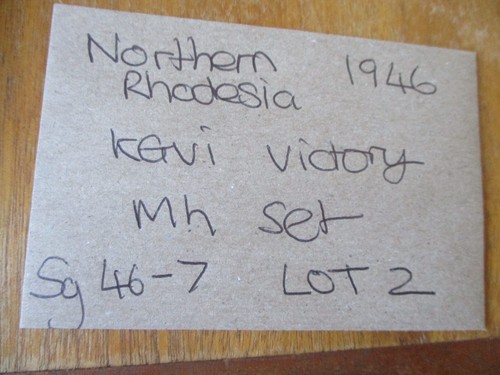 Northern 1946
Rhodesia
KGVi Victory
Mh Set
Sg 46-7 LOT 2